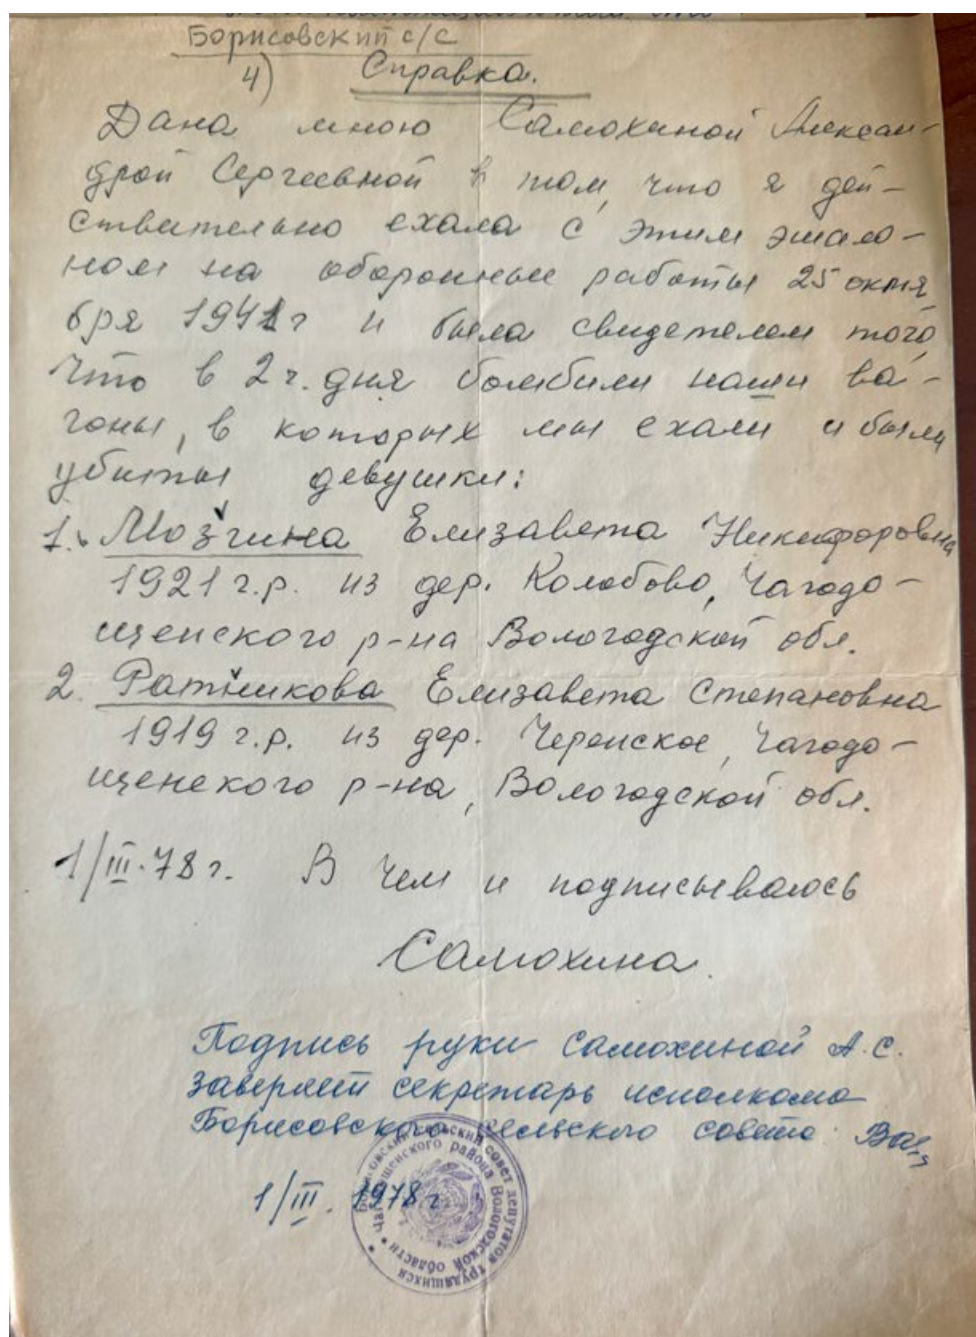 Борисовский с/с
4) Справка.
Дана мною Самохиной Алексан-
дрой Сергеевной в том, что я дей-
ствительно ехала с этим эшело-
ном на оборонные работы 25 октя-
бря 1941 г и была свидетелем того,
что в 2 ч. дня бомбили наши ва-
гоны, в которых мы ехали и были
убиты девушки:
1. Мозгина Елизавета Никифоровна
1921 г.р. из дер. Колобово, Чагодо-
щенского р-на Вологодской обл.
2. Ратникова Елизавета Степановна
1919 г.р. из дер. Черенское, Чагодо-
щенского р-на, Вологодской обл.
1/III-78 г. В чем и подписываюсь
Самохина.
Подпись руки Самохиной А.С.
заверяет секретарь исполкома
Борисовского сельского совета:
1/III. 1978 г.
Борисовский сельский совет депутатов трудящихся
Чагодощенского района Вологодской области